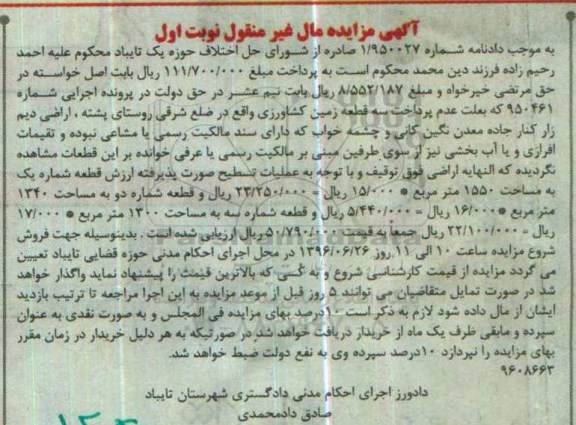 آگهی مزایده مال غیر منقول نوبت اول
به موجب دادنامه شماره ۱/۹۵۰۰۲۷ صادره از شورای حل اختلاف حوزه یک تایباد محکوم علیه احمد
رحیم زاده فرزند دین محمد محکوم است به پرداخت مبلغ ۱۱۱/۷۰۰/۰۰۰ ریال بابت اصل خواسته در
حق مرتضی خیرخواه و مبلغ ۸/۵۵۲/۱۸۷ ریال بابت نیم عشر در حق دولت در پرونده اجرایی شماره
۹۵۰۴۶۱ که بعلت عدم پرداخت سه قطعه زمین کشاورزی واقع در ضلع شرقی روستای پشته ، اراضی دیم
زار کنار جاده معدن نگین کانی و چشمه خواب که دارای سند مالکیت رسمی یا مشاعی نبوده و تقیمات
افرازی و یا آب بخشی نیز از سوی طرفین مبنی بر مالکیت رسمی یا عرفی خوانده بر این قطعات مشاهده
نگردیده که النهایه اراضی فوق توقیف و با توجه به عملیات تسطیح صورت پذیرفته ارزش قطعه شماره یک
به مساحت ۱۵۵۰ متر مربع * ۱۵/۰۰۰ ریال = ۲۳/۲۵۰/۰۰۰ ریال و قطعه شماره دو به مساحت ۱۳۴۰
متر مربع *۱۶/۰۰۰ ریال = ۵/۴۴۰/۰۰۰ ریال و قطعه شماره سه به مساحت ۱۳۰۰ متر مربع * ۱۷/۰۰۰
ریال = ۲۲/۱۰۰/۰۰۰ ریال جمعاً به قیمت ۵۰/۷۹۰/۰۰۰ ریال ارزیابی شده است . بدینوسیله جهت فروش
شروع مزایده ساعت ۱۰ الی ۱۱ روز ۱۳۹۶/۰۶/۲۶ در محل اجرای احکام مدنی حوزه قضایی تایباد تعیین
می گردد مزایده از قیمت کارشناسی شروع و به کسی که بالاترین قیمت را پیشنهاد نماید واگذار خواهد
شد در صورت تمایل متقاضیان می توانند ۵ روز قبل از موعد مزایده به این اجرا مراجعه تا ترتیب بازدید
ایشان از مال داده شود لازم به ذکر است ۱۰درصد بهای مزایده فی المجلس و به صورت نقدی به عنوان
سپرده و مابقی ظرف یک ماه از خریدار دریافت خواهد شد در صورتیکه به هر دلیل خریدار در زمان مقرر
بهای مزایده را نپردازد ۱۰درصد سپرده وی به نفع دولت ضبط خواهد شد.
۹۶۰۸۶۶۳
دادورز اجرای احکام مدنی دادگستری شهرستان تایباد
صادق دادمحمدی